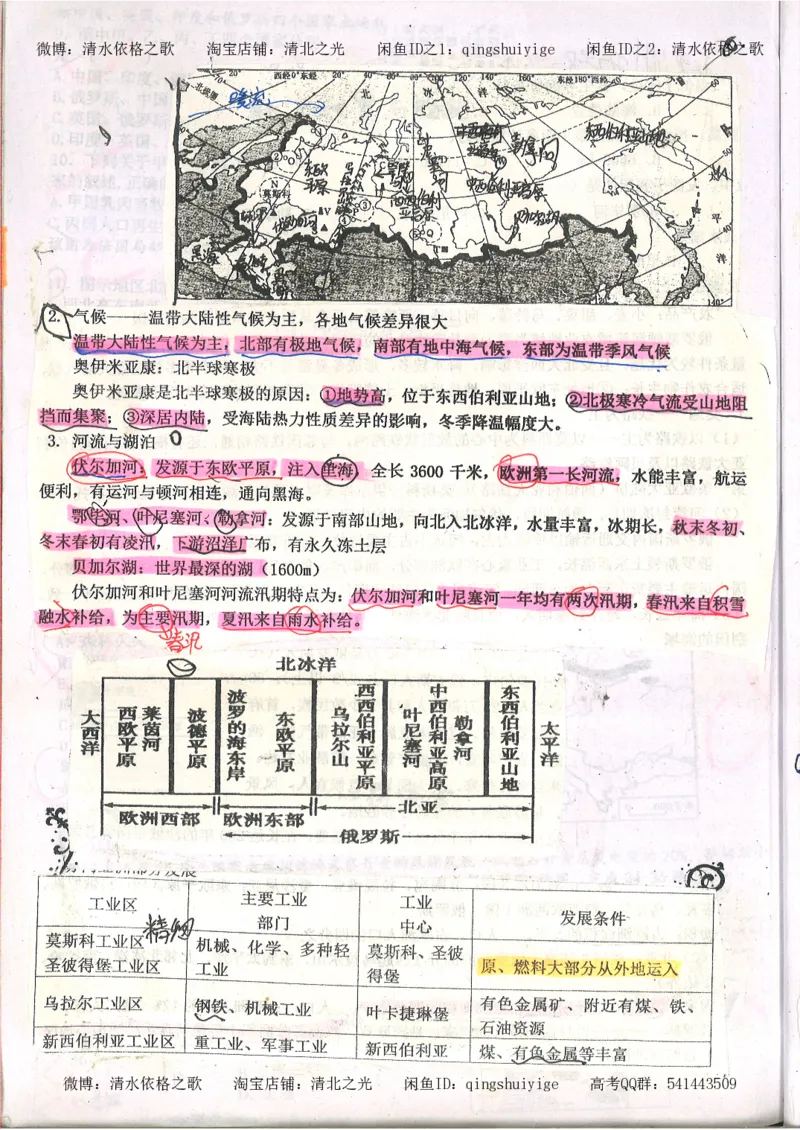 微博：清水依格之歌 淘宝店铺：清北之光 闲鱼ID之1：qingshuiyige 闲鱼ID之2：清水依格之歌
20° 西经0°东经 20° 40° 60° 80° 100° 120° 140° 160° 东经180°西经
北 冰 洋
暖流
东西伯利亚山地
莫斯科
太
平
洋
140°
2. 气候——温带大陆性气候为主，各地气候差异很大
温带大陆性气候为主，北部有极地气候，南部有地中海气候，东部为温带季风气候
奥伊米亚康：北半球寒极
奥伊米亚康是北半球寒极的原因：①地势高，位于东西伯利亚山地；②北极寒冷气流受山地阻
挡而集聚；③深居内陆，受海陆热力性质差异的影响，冬季降温幅度大。
3. 河流与湖泊
伏尔加河：发源于东欧平原，注入里海，全长 3600 千米，欧洲第一长河流，水能丰富，航运
便利，有运河与顿河相连，通向黑海。
鄂毕河、叶尼塞河、勒拿河：发源于南部山地，向北入北冰洋，水量丰富，冰期长，秋末冬初、
冬末春初有凌汛，下游沼泽广布，有永久冻土层
贝加尔湖：世界最深的湖（1600m）
伏尔加河和叶尼塞河河流汛期特点为：伏尔加河和叶尼塞河一年均有两次汛期，春汛来自积雪
融水补给，为主要汛期，夏汛来自雨水补给。
春汛
北冰洋
大西洋
西欧平原
莱茵河
波德平原
波罗的海东岸
东欧平原
乌拉尔山
西西伯利亚平原
叶尼塞河
中西伯利亚高原
勒拿河
东西伯利亚山地
太平洋
欧洲西部 欧洲东部 北亚
俄罗斯
工业区 主要工业部门 工业中心 发展条件
精细
莫斯科工业区 机械、化学、多种轻 莫斯科、圣彼
圣彼得堡工业区 工业 得堡 原、燃料大部分从外地运入
乌拉尔工业区 钢铁、机械工业 叶卡捷琳堡 有色金属矿、附近有煤、铁、
石油资源
新西伯利亚工业区 重工业、军事工业 新西伯利亚 煤、有色金属等丰富
微博：清水依格之歌 淘宝店铺：清北之光 闲鱼ID：qingshuiyige 高考QQ群：541443509